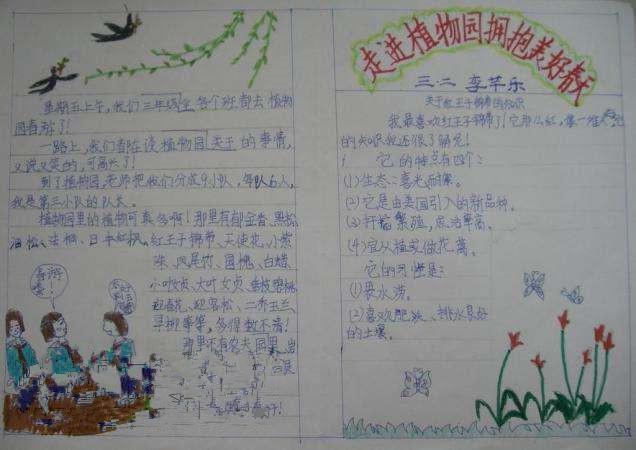 星期五上午，我们三年级全各个班都去植物
园春游了！
一路上，我们都在谈植物园类于的事情，
又说又笑的，可高兴了！
到了植物园，老师把我们分成9小队，每队6人，
我是第三小队的队长。
植物园里的植物可真多啊！那里有郁金香、黑松、
油松、法桐、日本红枫、红王子锦带、天使花、小紫
珠、凤尾竹、国槐、白蜡、
小叶女贞、大叶女贞、垂枝碧桃、
迎春花、迎客松、二乔玉兰、
寻柳等等，多得数不清！
那里还有农夫
走进植物园拥抱美好春天
三.二 李芊乐
关于红王子锦带的知识
我最喜欢红王子锦带了！它那么红，像一堆火，它
的知识我还很了解呢！
它的特点有四个：
(1)生态：喜光耐寒。
(2)它是由美国引入的新品种。
(3)扦插繁殖，成活率高。
(4)宜丛植或做花篱。
它的习惯是：
(1)畏水涝。
(2)喜欢肥沃、排水良好
的土壤。